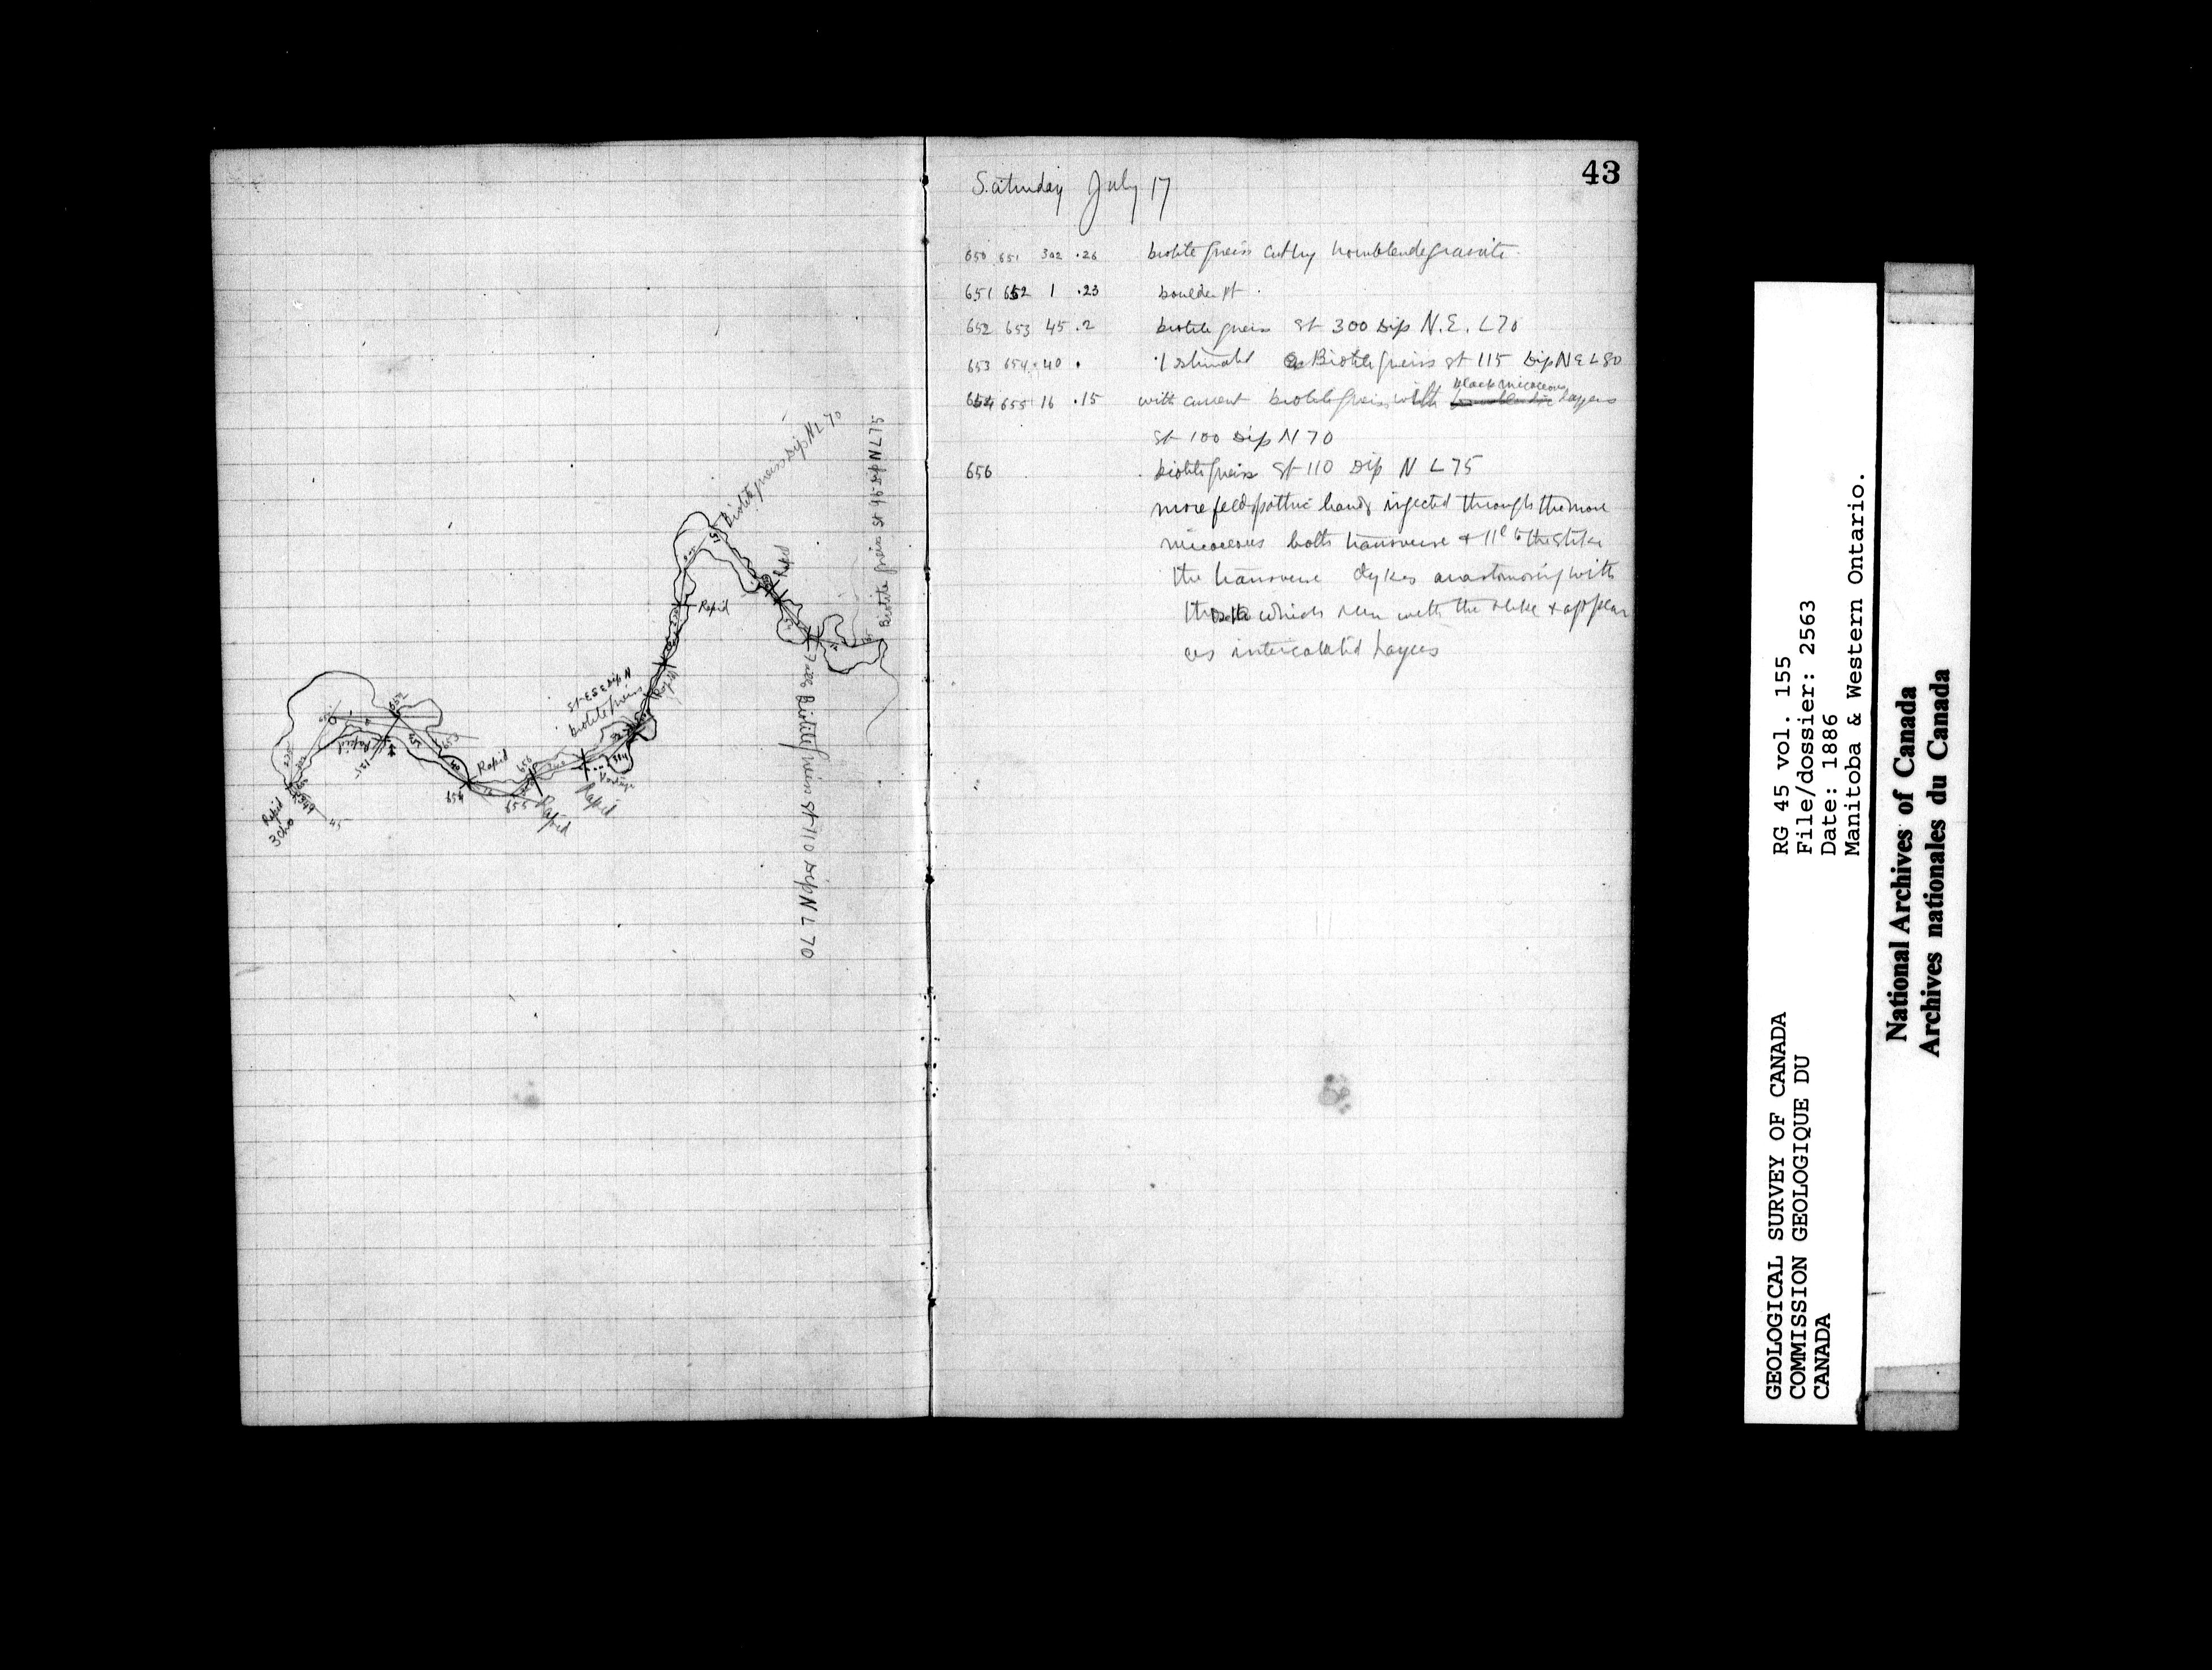 43
Saturday July 17
650 651 302 .26 biotite gneiss cut by hornblende granite
651 652 1 .23 boulder pt.
652 653 45 .2 biotite gneiss St 300 Dip N.E. L70
653 654 40 . .1 estimated Biotite gneiss St 115 Dip NE L80
654 655 16 .15 with current biotite gneiss with black micaceous layers
St 100 Dip N 70
656 biotite gneiss St 110 Dip N L75
more feldspathic bands injected through the more
micaceous both transverse & 11el to the strike
the transverse dykes anastomosing with
those which run with the strike & appear
as intercalated layers
Biotite gneiss Dip N L 70
Biotite gneiss St 95 Dip N L75
Rapid
Rapid
Falls Biotite gneiss St 110 Dip N L 70
Rapid
St 353 Dip N
biotite gneiss
652
653
Rapid
Rapid
654
656
655
Rapid
Portage
Rapid
Rapid
3 chs
RG 45 vol. 155
File/dossier: 2563
Date: 1886
Manitoba & Western Ontario.
GEOLOGICAL SURVEY OF CANADA
COMMISSION GEOLOGIQUE DU
CANADA
National Archives of Canada
Archives nationales du Canada